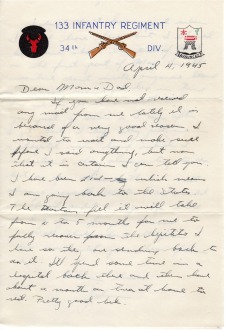 133 INFANTRY REGIMENT
34th DIV.
April 4, 1945
Dear Mom & Dad,
If you have not received
any mail from me lately it is
because of a very good reason. I
wanted to wait and make sure
before I said anything, but now
that it is certain I can tell you
I have been which means
I am going back to the States.
The Doctors feel it will take
from 4 to 5 months for me to
fully recover from the hepatitis I
have so they are sending back to
do it. I'll spend some time in a
hospital back there and then have
about a month or two at home to
rest. Pretty good huh.